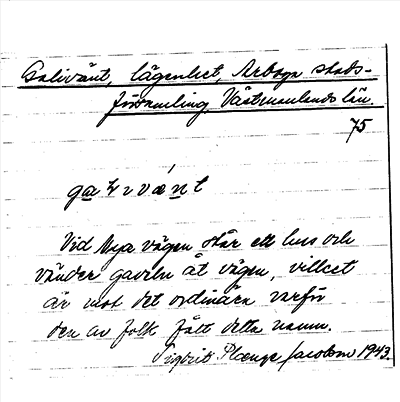 Galivänt, lägenhet, Arboga stads-
församling, Västmanlands län.
75
Vid Nya vägen står ett hus och
vänder gaveln åt vägen, vilket
är mot det ordinära varför
den av folk fått detta namn.
Plænge Jacobson 1943.